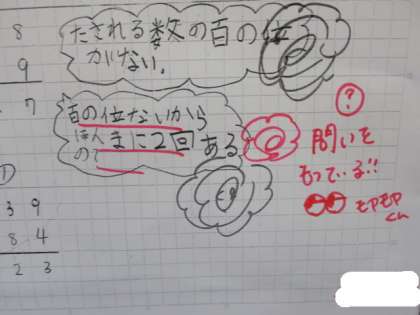 8
たされる数の百の位
がない。
9
7
百の位ないから
ほんまに2回ある
ので
?
問いを
もっている!!
モヤモヤ
くん
①
3 9
8 4
2 3